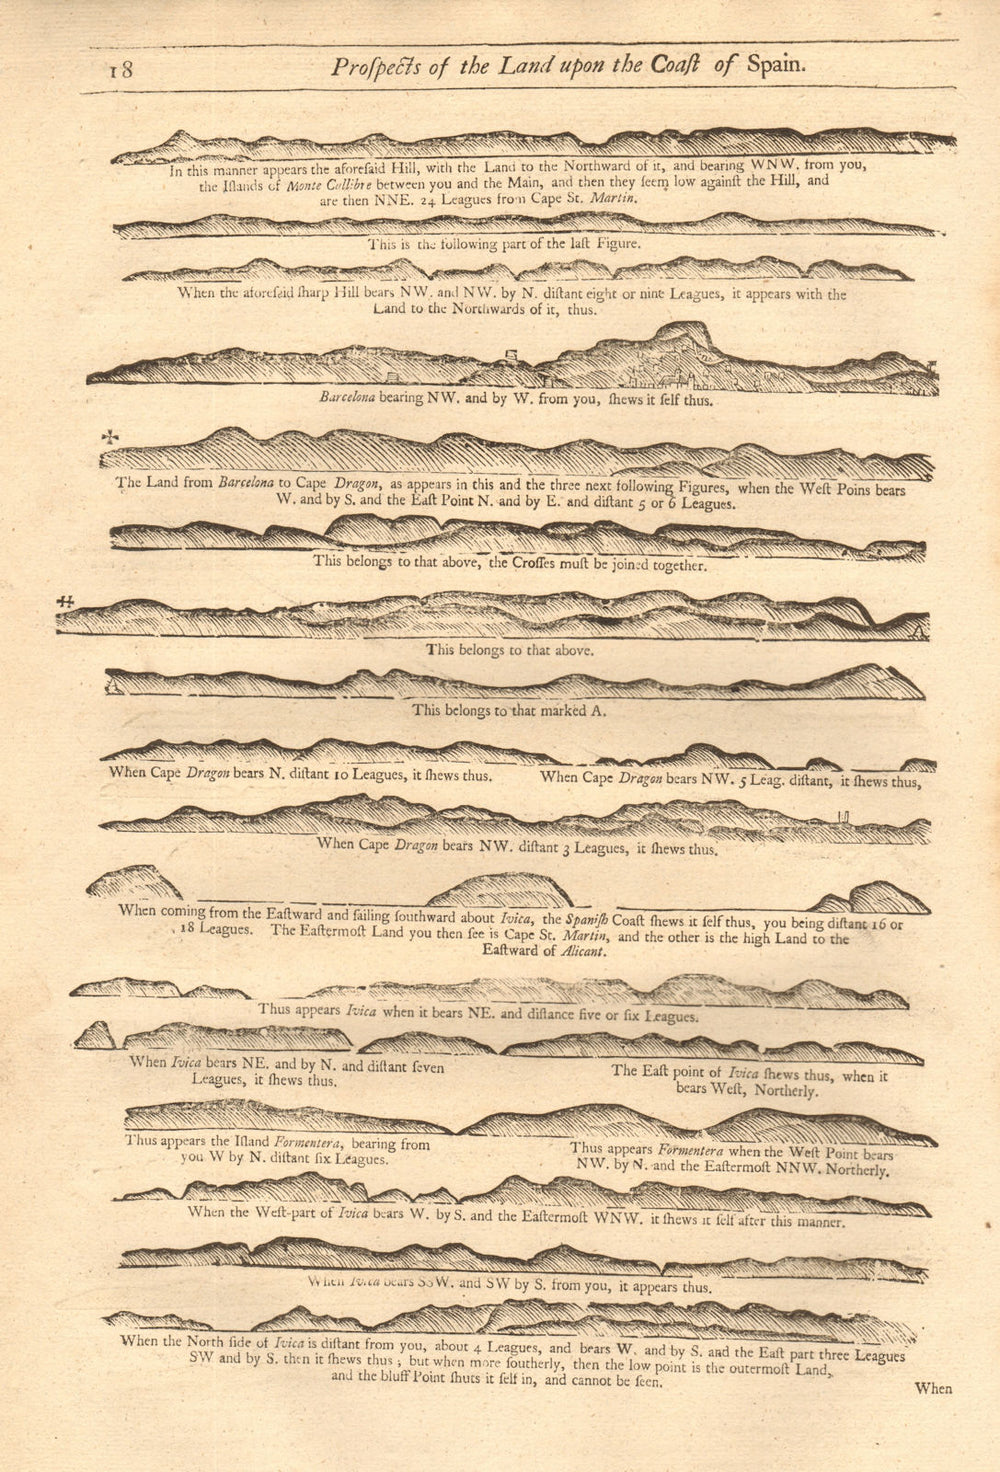 18
Proſpects of the Land upon the Coaſt of Spain.
In this manner appears the aforeſaid Hill, with the Land to the Northward of it, and bearing WNW. from you,
the Iſlands of Monte Collibre between you and the Main, and then they ſeem low againſt the Hill, and
are then NNE. 24 Leagues from Cape St. Martin.
This is the following part of the laſt Figure.
When the aforeſaid ſharp Hill bears NW. and NW. by N. diſtant eight or nine Leagues, it appears with the
Land to the Northwards of it, thus.
Barcelona bearing NW. and by W. from you, ſhews it ſelf thus.
The Land from Barcelona to Cape Dragon, as appears in this and the three next following Figures, when the Weſt Poins bears
W. and by S. and the Eaſt Point N. and by E. and diſtant 5 or 6 Leagues.
This belongs to that above, the Croſſes muſt be joined together.
This belongs to that above.
A
A
This belongs to that marked A.
When Cape Dragon bears N. diſtant 10 Leagues, it ſhews thus.
When Cape Dragon bears NW. 5 Leag. diſtant, it ſhews thus,
When Cape Dragon bears NW. diſtant 3 Leagues, it ſhews thus.
When coming from the Eaſtward and ſailing ſouthward about Ivica, the Spaniſh Coaſt ſhews it ſelf thus, you being diſtant 16 or
18 Leagues. The Eaſtermoſt Land you then ſee is Cape St. Martin, and the other is the high Land to the
Eaſtward of Alicant.
Thus appears Ivica when it bears NE. and diſtance five or ſix Leagues.
When Ivica bears NE. and by N. and diſtant ſeven
Leagues, it ſhews thus.
The Eaſt point of Ivica ſhews thus, when it
bears Weſt, Northerly.
Thus appears the Iſland Formentera, bearing from
you W by N. diſtant ſix Leagues.
Thus appears Formentera when the Weſt Point bears
NW. by N. and the Eaſtermoſt NNW. Northerly.
When the Weſt-part of Ivica bears W. by S. and the Eaſtermoſt WNW. it ſhews it ſelf after this manner.
When Ivica bears SSW. and SW by S. from you, it appears thus.
When the North ſide of Ivica is diſtant from you, about 4 Leagues, and bears W. and by S. and the Eaſt part three Leagues
SW and by S. then it ſhews thus; but when more ſoutherly, then the low point is the outermoſt Land,
and the bluff Point ſhuts it ſelf in, and cannot be ſeen.
When